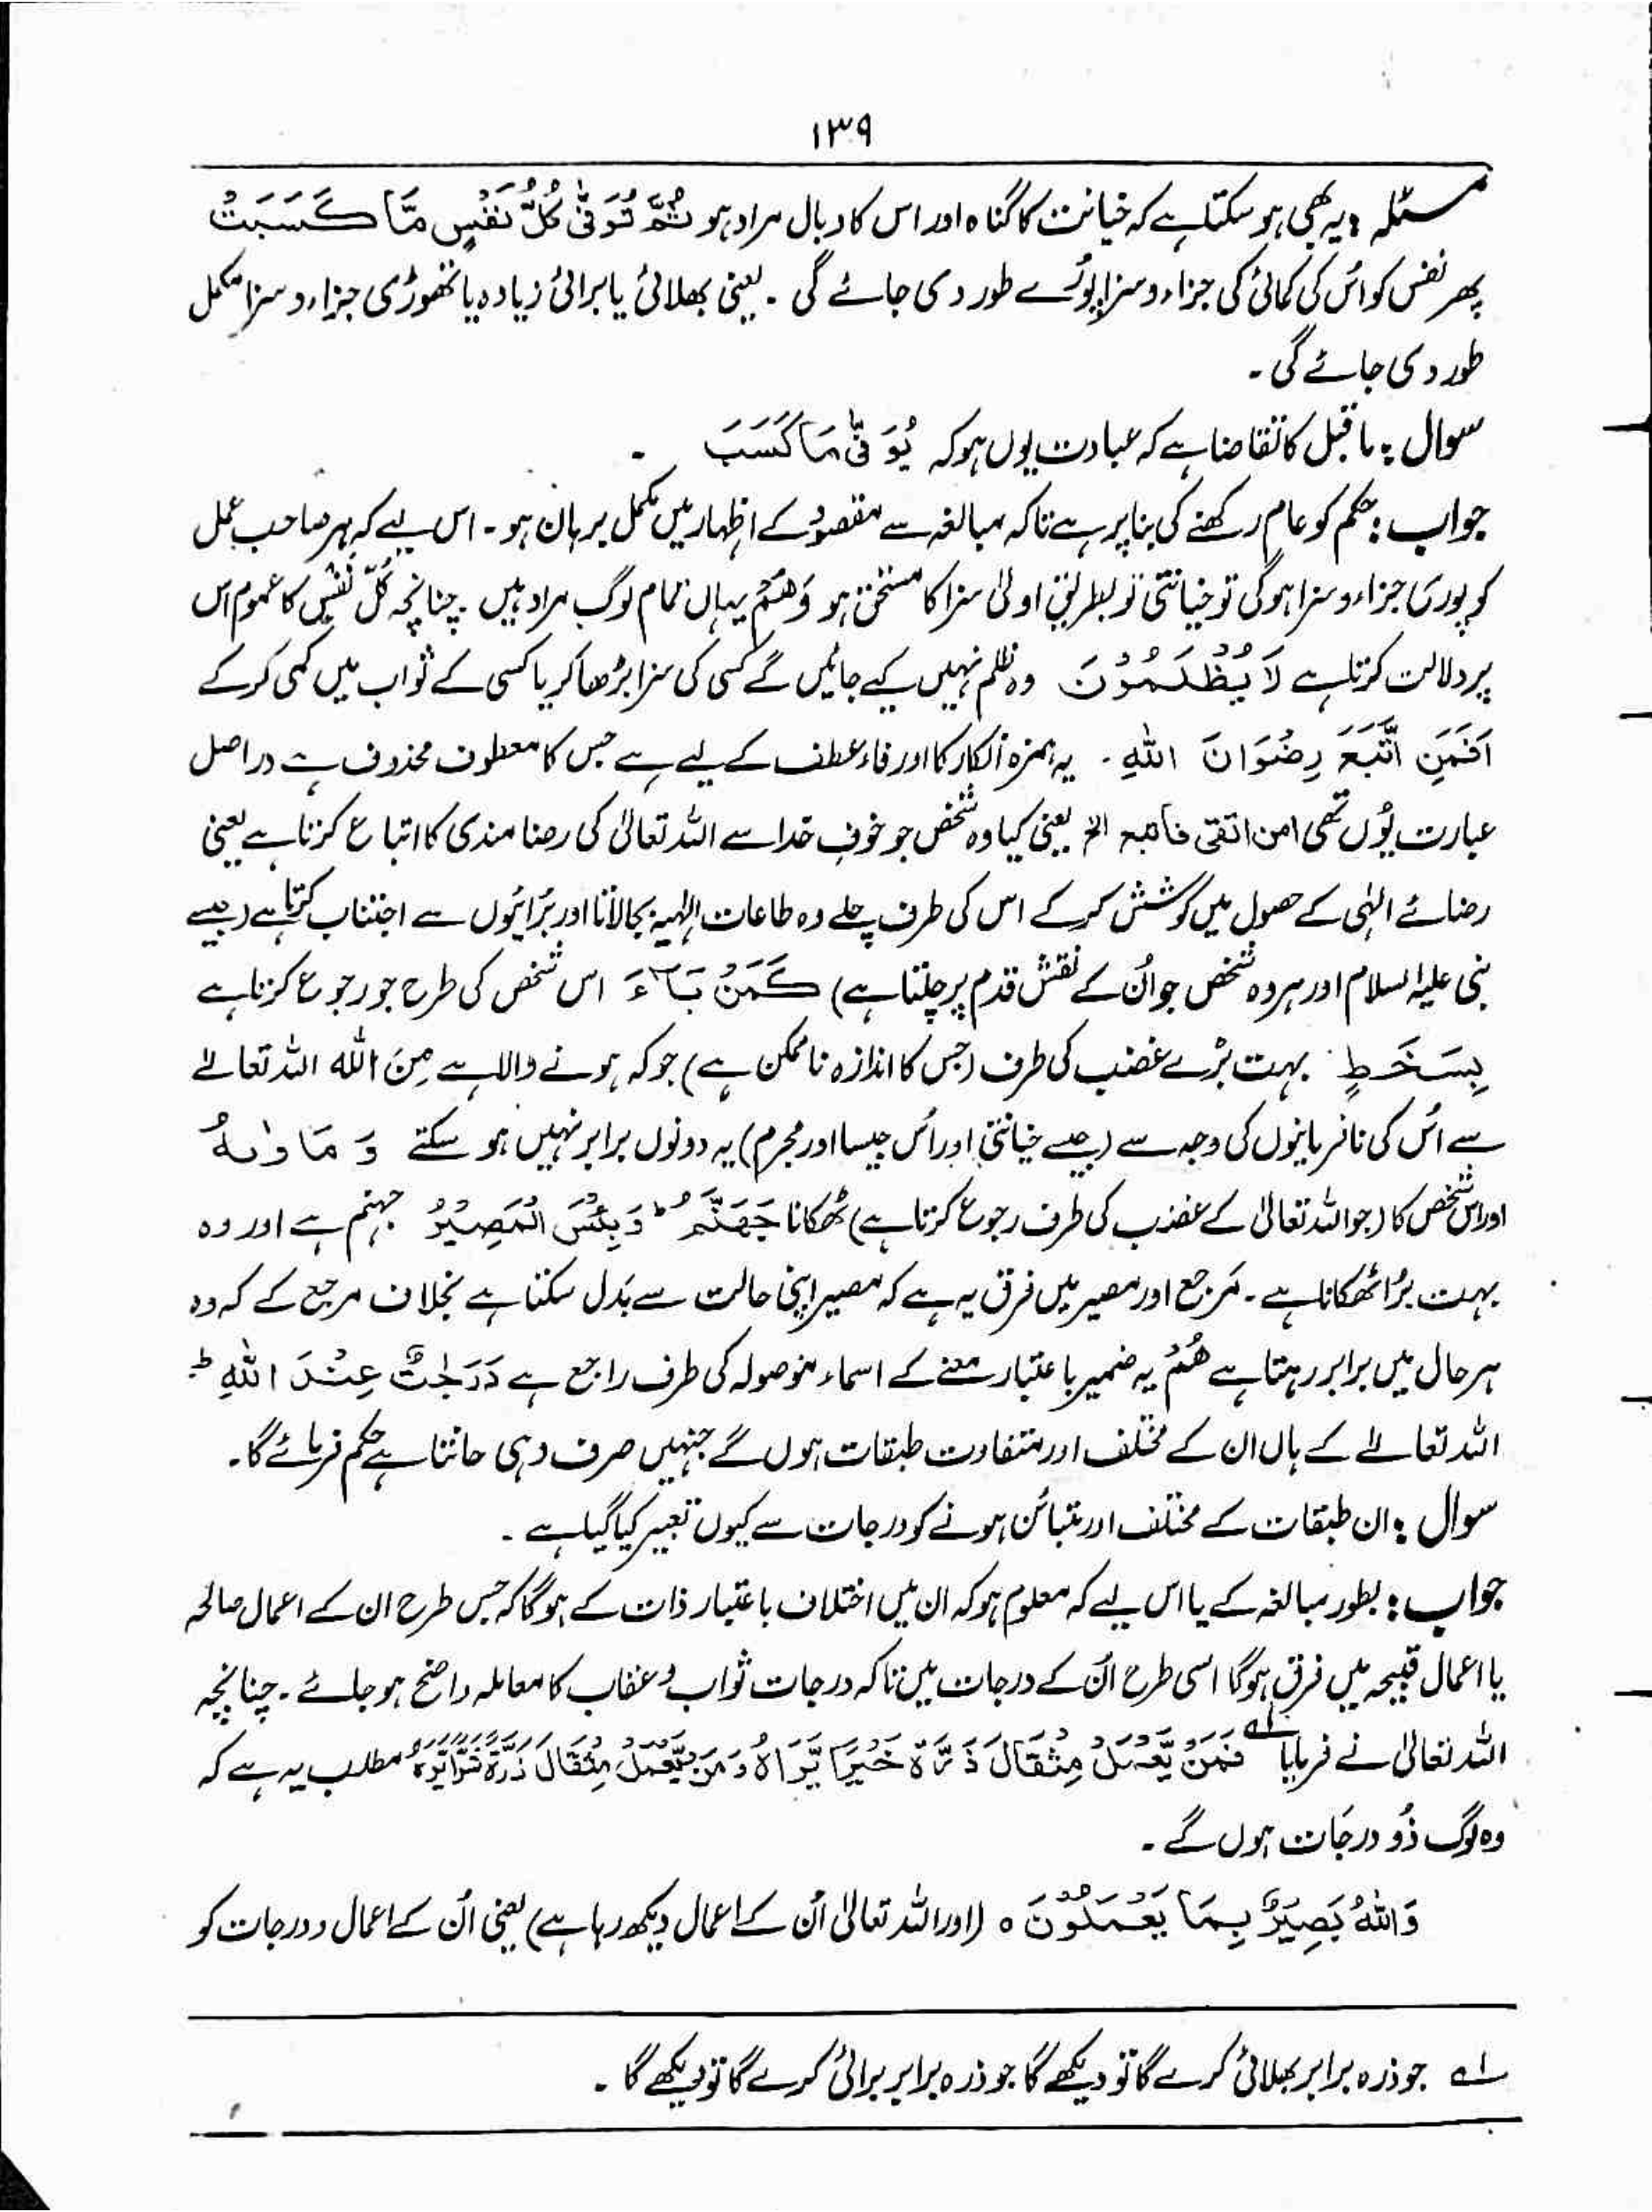 ۱۳۹
مسئلہ : یہ بھی ہو سکتا ہے کہ خیانت کا گناہ اور اس کا وبال مراد ہو ثُمَّ تُوَفّٰی کُلُّ نَفْسٍ مَّا کَسَبَتْ
پھر نفس کو اُس کی کمائی کی جزاء و سزا پورُے طور دی جائے گی ۔ یعنی بھلائی یا برائی زیادہ یا تھوڑی جزاء و سزا مکمل
طور دی جائے گی ۔
سوال : ما قبل کا تقاضا ہے کہ عبادت یوں ہو کہ یُوَفّٰی مَا کَسَبَ ۔
جواب : حکم کو عام رکھنے کی بنا پر ہے تاکہ مبالغہ سے مقصود کے اظہار میں مکمل برہان ہو ۔ اس لیے کہ ہر صاحب عمل
کو پوری جزاء و سزا ہو گی تو خیانتی تو بطریق اولیٰ سزا کا مستحق ہو وَھُمْ یہاں تمام لوگ مراد ہیں ۔ چنانچہ کُلّ نَفْسٍ کا عموم اس
پر دلالت کرتا ہے لَا یُظْلَمُوْنَ وہ ظلم نہیں کیے جائیں گے کسی کی سزا بڑھا کر یا کسی کے ثواب میں کمی کر کے
اَفَمَنِ اتَّبَعَ رِضْوَانَ اللہِ ۔ یہ ہمزہ انکار کا اور فاء عطف کے لیے ہے جس کا معطوف محذوف ہے در اصل
عبارت یُوں تھی امن اتقی فاتبع الخ یعنی کیا وہ شخص جو خوفِ خدا سے اللہ تعالیٰ کی رضا مندی کا اتباع کرتا ہے یعنی
رضائے الہٰی کے حصول میں کوشش کر کے اس کی طرف چلے وہ طاعات الٰہیہ بجا لاتا اور بُرائیوں سے اجتناب کرتا ہے (جیسے
نبی علیہ السلام اور ہر وہ شخص جو اُن کے نقش قدم پر چلتا ہے) کَمَنْۢ بَآءَ اس شخص کی طرح جو رجوع کرتا ہے
بِسَخَطٍ بہت بڑے غضب کی طرف (جس کا اندازہ ناممکن ہے) جو کہ ہونے والا ہے مِنَ اللہ اللہ تعالےٰ
سے اُس کی نافرمانیوں کی وجہ سے (جیسے خیانتی اور اُس جیسا اور مجرم) یہ دونوں برابر نہیں ہو سکتے وَ مَاْوٰىهُ
اور اس شخص کا (جو اللہ تعالیٰ کے غضب کی طرف رجوع کرتا ہے) ٹھکانا جَھَنَّمُ ؕ وَبِئْسَ الْمَصِیْرُ جہنم ہے اور وہ
بہت بُرا ٹھکانا ہے ۔ مَرجع اور مصیر میں فرق یہ ہے کہ مصیر اپنی حالت سے بَدل سکتا ہے بخلاف مرجع کے کہ وہ
ہر حال میں برابر رہتا ہے ھُمْ یہ ضمیر با عتبار معنے کے اسماء موصولہ کی طرف راجع ہے دَرَجٰتٌ عِنْدَ اللہِ ؕ
اللہ تعالےٰ کے ہاں ان کے مختلف اور متفاوت طبقات ہوں گے جنہیں صرف وہی جانتا ہے حکم فرمائے گا ۔
سوال : ان طبقات کے مختلف اور متبائن ہونے کو درجات سے کیوں تعبیر کیا گیا ہے ۔
جواب : بطور مبالغہ کے یا اس لیے کہ معلوم ہو کہ ان میں اختلاف با عتبار ذات کے ہو گا کہ جس طرح ان کے اعمال صالحہ
یا اعمال قبیحہ میں فرق ہو گا اسی طرح اُن کے درجات میں تاکہ درجات ثواب و عقاب کا معاملہ واضح ہو جائے ۔ چنانچہ
اللہ تعالیٰ نے فرمایا لہ فَمَنْ یَّعْمَلْ مِثْقَالَ ذَرَّۃٍ خَیْرًا یَّرَاہُ وَ مَنْ یَّعْمَلْ مِثْقَالَ ذَرَّۃٍ شَرًّا یَّرَہٗ مطلب یہ ہے کہ
وہ لوگ ذُو درجَات ہوں گے ۔
وَاللہُ بَصِیْرٌۢ بِمَا یَعْمَلُوْنَ ہ (اور اللہ تعالیٰ اُن کے اعمال دیکھ رہا ہے) یعنی اُن کے اعمال و درجات کو
لہ جو ذرہ برابر بھلائی کرے گا تو دیکھے گا جو ذرہ برابر برائی کرے گا تو دیکھے گا ۔